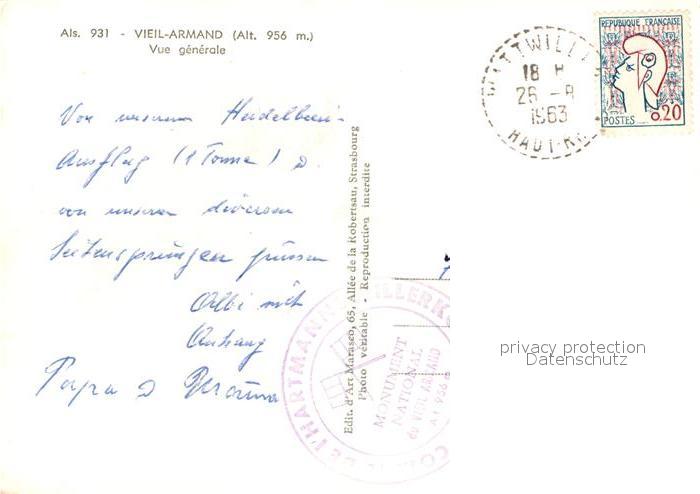 Als. 931 - VIEIL-ARMAND (Alt. 956 m.)
Vue générale
REPUBLIQUE FRANÇAISE
0.20
POSTES
18 H
26 -8
1963
HAUT-RH
Von unserem Heidelbeer-
Ausflug (1 Tonne) u.
von unseren diversen
Seitensprüngen grüssen
mit
Anhang
Papa
Edit. d'Art Marasco, 65, Allée de la Robertsau, Strasbourg
Photo véritable - Reproduction interdite
DE L'HARTMANNSWILLERK
MONUMENT
NATIONAL
du VIEIL ARMAND
Alt 956 m
privacy protection
Datenschutz